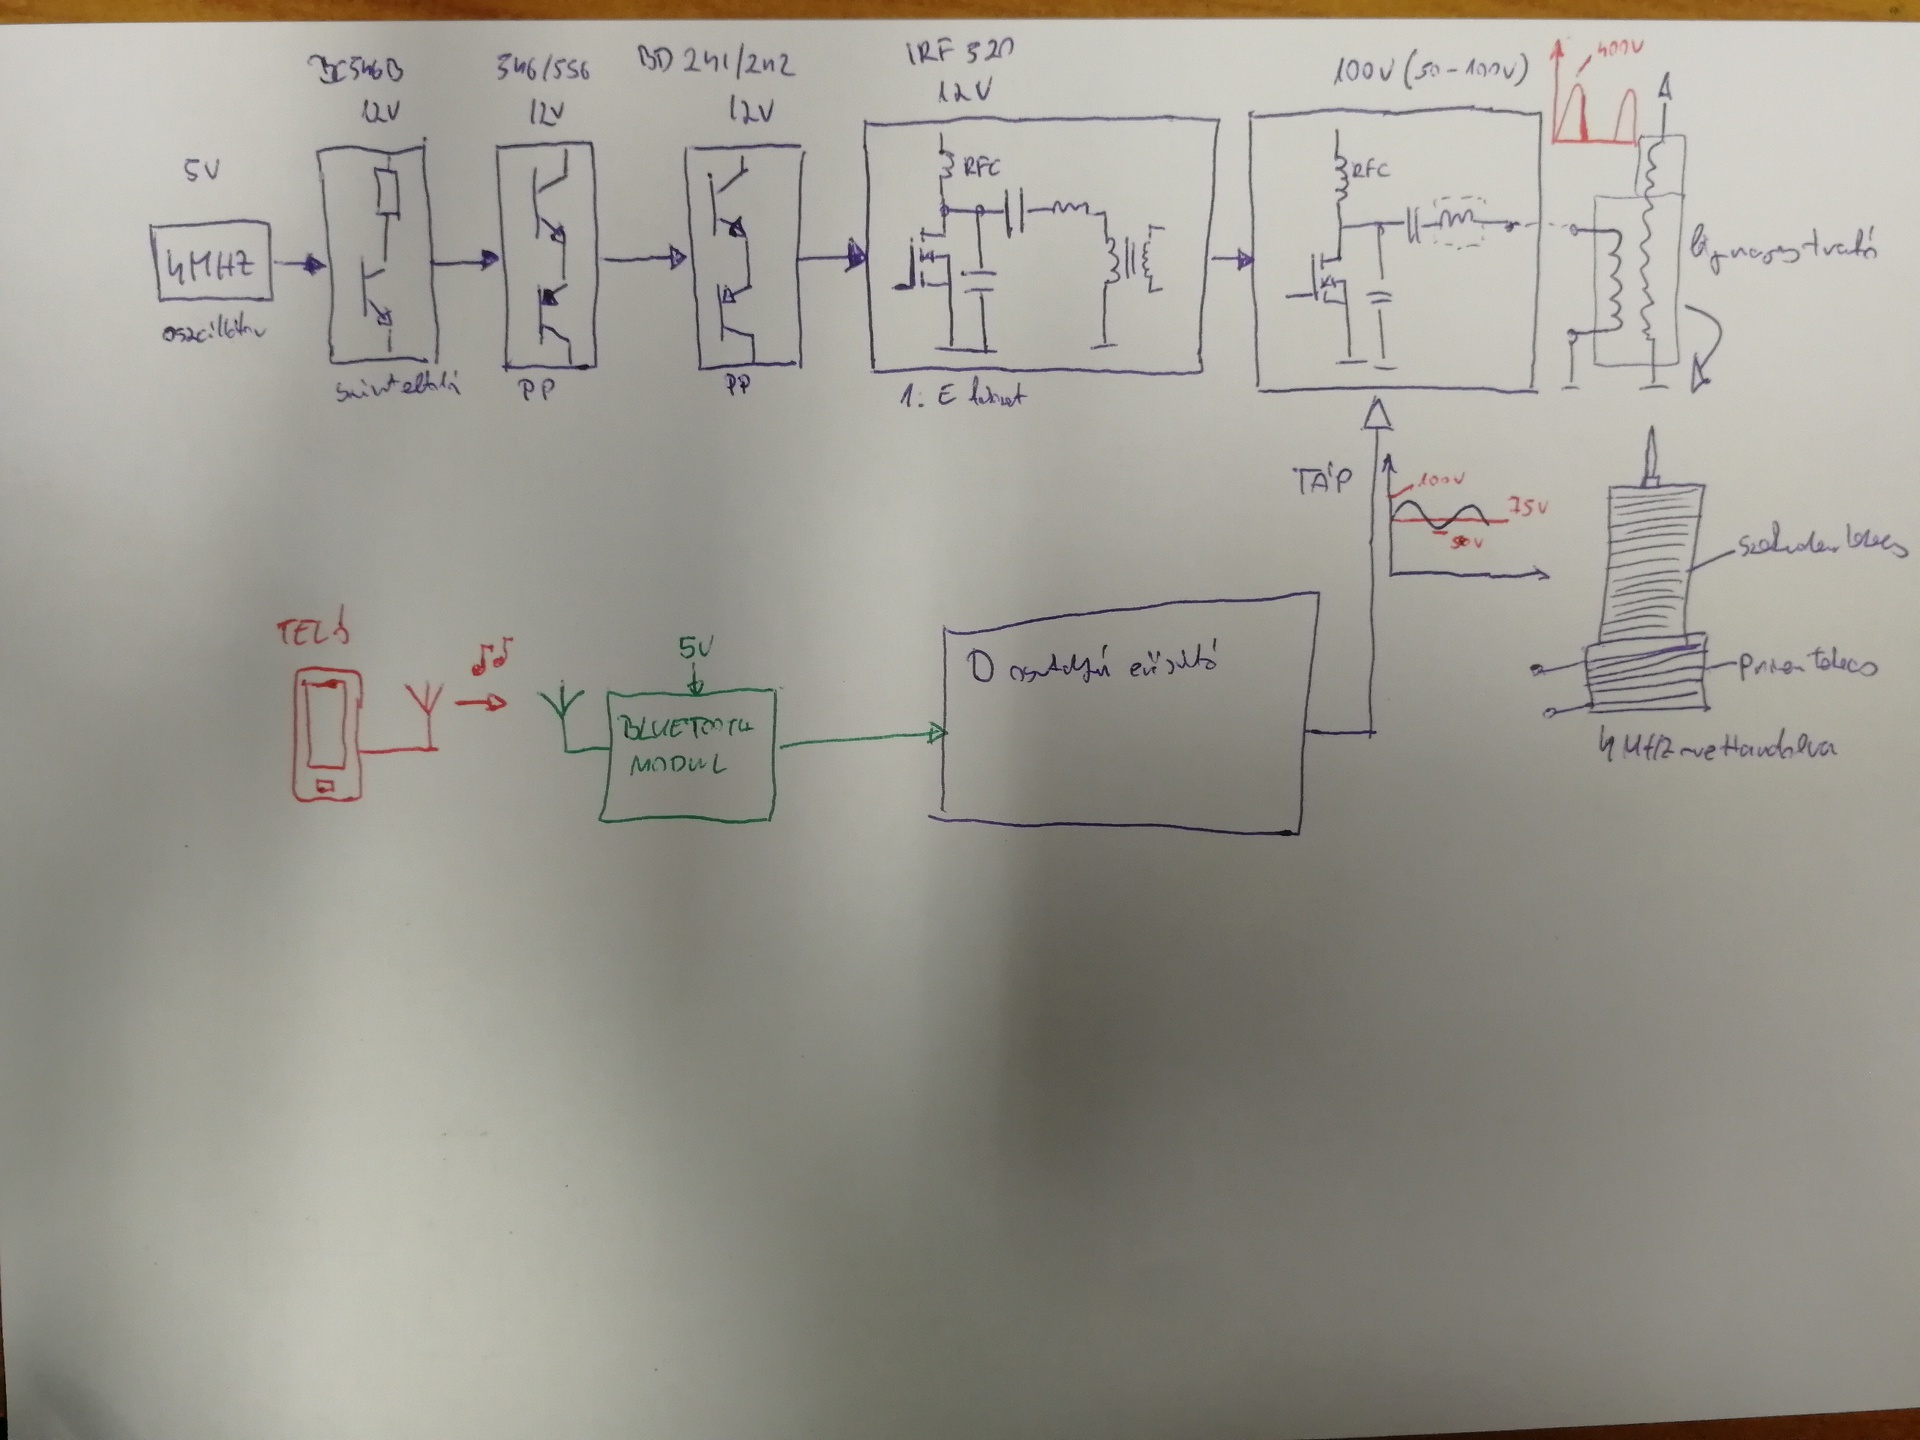 BC546B
12V
546/556
12V
BD 241/242
12V
IRF 520
12V
100V (50-100V)
400V
5V
4MHZ
oszcillátor
szinteltoló
PP
PP
RFC
1. E fokozat
RFC
TÁP
100V
75V
50V
szekunder tekercs
primer tekercs
4 MHZ-re hangolva
TELÓ
5V
BLUETOOTH
MODUL
D osztályú erősítő